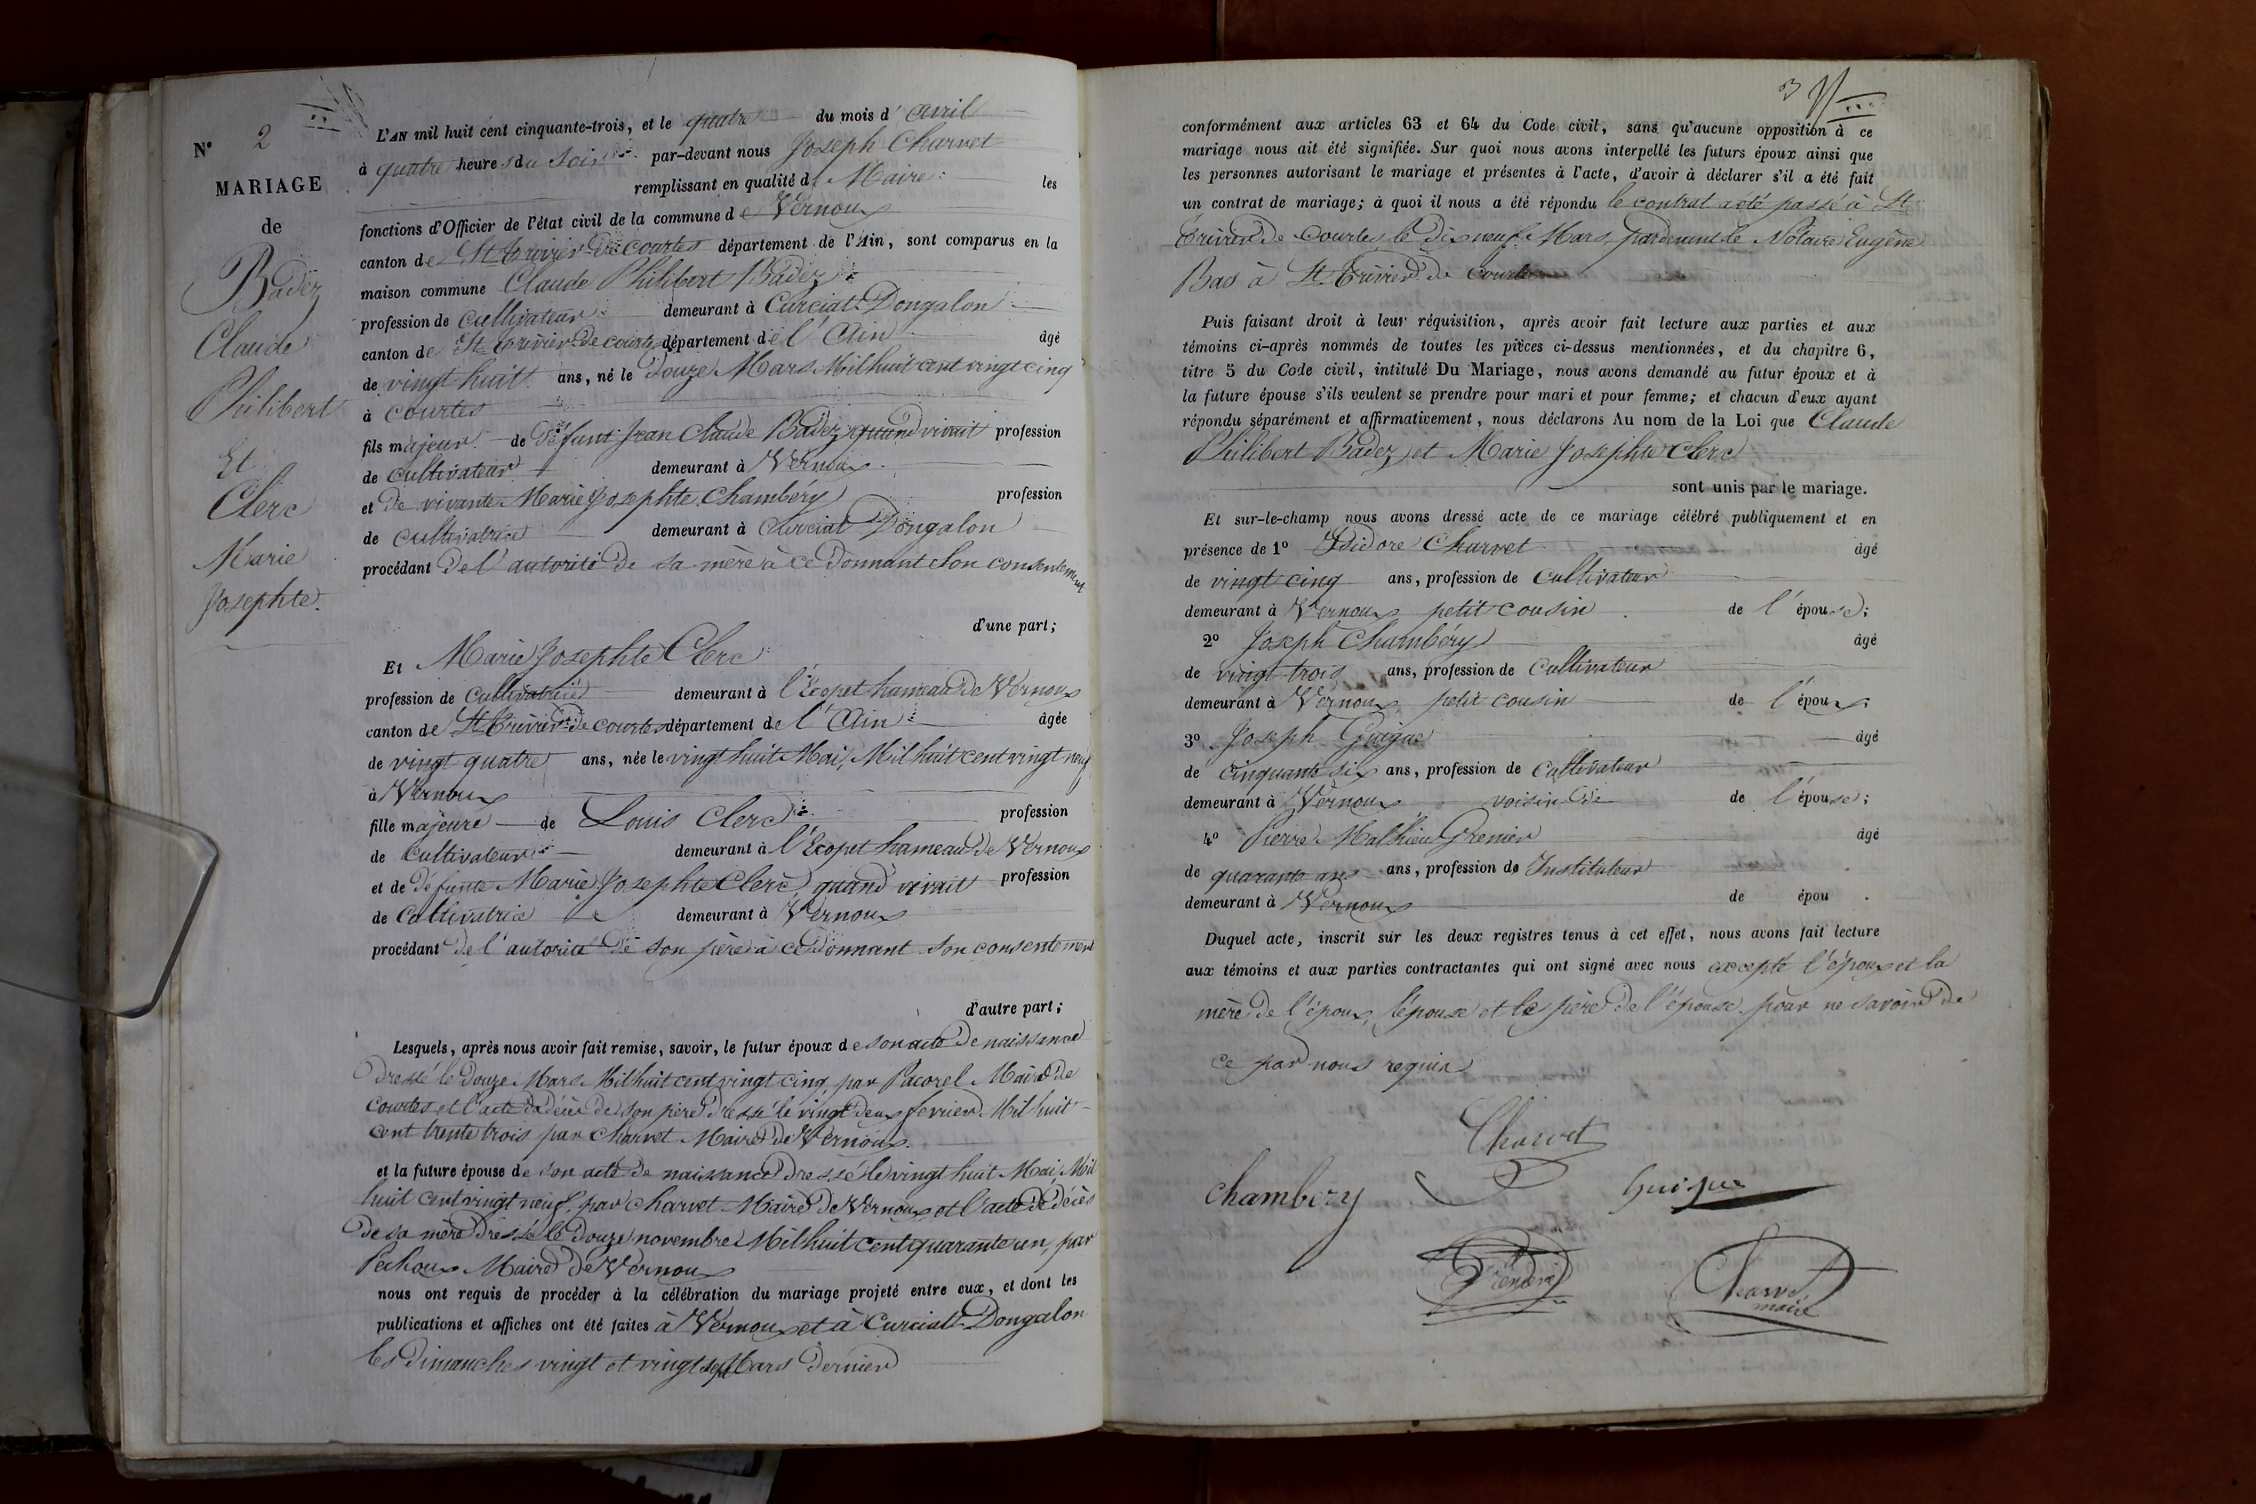 N° 2
MARIAGE
de
Badez
Claude
Philibert
Et
Clerc
Marie
Josephte.
L'AN mil huit cent cinquante-trois, et le quatre du mois d'avril
à quatre heures du soir par-devant nous Joseph Charvet
remplissant en qualité de Maire les
fonctions d'Officier de l'état civil de la commune de Vernoux
canton de St Trivier de courtes département de l'Ain, sont comparus en la
maison commune Claude Philibert Badez
profession de cultivateur demeurant à Curciat Dongalon
canton de St Trivier de courtes département de l'Ain âgé
de vingt huit ans, né le douze Mars Mil huit cent vingt cinq
à courtes
fils majeur de défunt Jean Claude Badez quand vivait profession
de cultivateur demeurant à Vernoux
et de vivante Marie Josephte Chambéry profession
de cultivatrice demeurant à Curciat Dongalon
procédant de l'autorité de sa mère à ce donnant son consentement
d'une part;
Et Marie Josephte Clerc
profession de cultivatrice demeurant à l'Ecopet hameau de Vernoux
canton de St Trivier de courtes département de l'Ain âgée
de vingt quatre ans, née le vingt huit Mai, Mil huit cent vingt neuf
à Vernoux
fille majeure de Louis Clerc profession
de cultivateur demeurant à l'Ecopet hameau de Vernoux
et de défunte Marie Josephte Clerc quand vivait profession
de cultivatrice demeurant à Vernoux
procédant de l'autorité de son père à ce donnant son consentement
d'autre part;
Lesquels, après nous avoir fait remise, savoir, le futur époux de son acte de naissance
dressé le douze Mars Mil huit cent vingt cinq, par Pacorel Maire de
Courtes et l'acte de décès de son père dressé le vingt deux fevrier Mil huit
cent trente trois par Charvet Maire de Vernoux.
et la future épouse de son acte de naissance dressé le vingt huit Mai, Mil
huit cent vingt neuf, par Charvet Maire de Vernoux et l'acte de décès
de sa mère dressé le douze novembre Mil huit cent quarante un, par
Pechoux Maire de Vernoux
nous ont requis de procéder à la célébration du mariage projeté entre eux, et dont les
publications et affiches ont été faites à Vernoux et à Curciat Dongalon
les dimanches vingt et vingt sept Mars dernier
3
conformément aux articles 63 et 64 du Code civil, sans qu'aucune opposition à ce
mariage nous ait été signifiée. Sur quoi nous avons interpellé les futurs époux ainsi que
les personnes autorisant le mariage et présentes à l'acte, d'avoir à déclarer s'il a été fait
un contrat de mariage; à quoi il nous a été répondu le contrat a été passé à St
Trivier de Courtes, le dix neuf Mars, par devant le Notaire Eugène
Bas à St Trivier de Courtes
Puis faisant droit à leur réquisition, après avoir fait lecture aux parties et aux
témoins ci-après nommés de toutes les pièces ci-dessus mentionnées, et du chapitre 6,
titre 5 du Code civil, intitulé Du Mariage, nous avons demandé au futur époux et à
la future épouse s'ils veulent se prendre pour mari et pour femme; et chacun d'eux ayant
répondu séparément et affirmativement, nous déclarons Au nom de la Loi que Claude
Philibert Badez et Marie Josephte Clerc
sont unis par le mariage.
Et sur-le-champ nous avons dressé acte de ce mariage célébré publiquement et en
présence de 1° Isidore Charvet âgé
de vingt cinq ans, profession de cultivateur
demeurant à Vernoux petit cousin de l'épouse;
2° Joseph Chambéry âgé
de vingt trois ans, profession de cultivateur
demeurant à Vernoux petit cousin de l'époux;
3° Joseph Guigue âgé
de cinquante six ans, profession de cultivateur
demeurant à Vernoux voisin de de l'épouse;
4° Pierre Mathieu Grenier âgé
de quarante ans ans, profession de Instituteur
demeurant à Vernoux de épou .
Duquel acte, inscrit sur les deux registres tenus à cet effet, nous avons fait lecture
aux témoins et aux parties contractantes qui ont signé avec nous excepté l'époux et la
mère de l'époux, l'épouse et le père de l'épouse pour ne savoir de
ce par nous requis
Charvet
Chambery
Guigue
Grenier
Charvet
maire